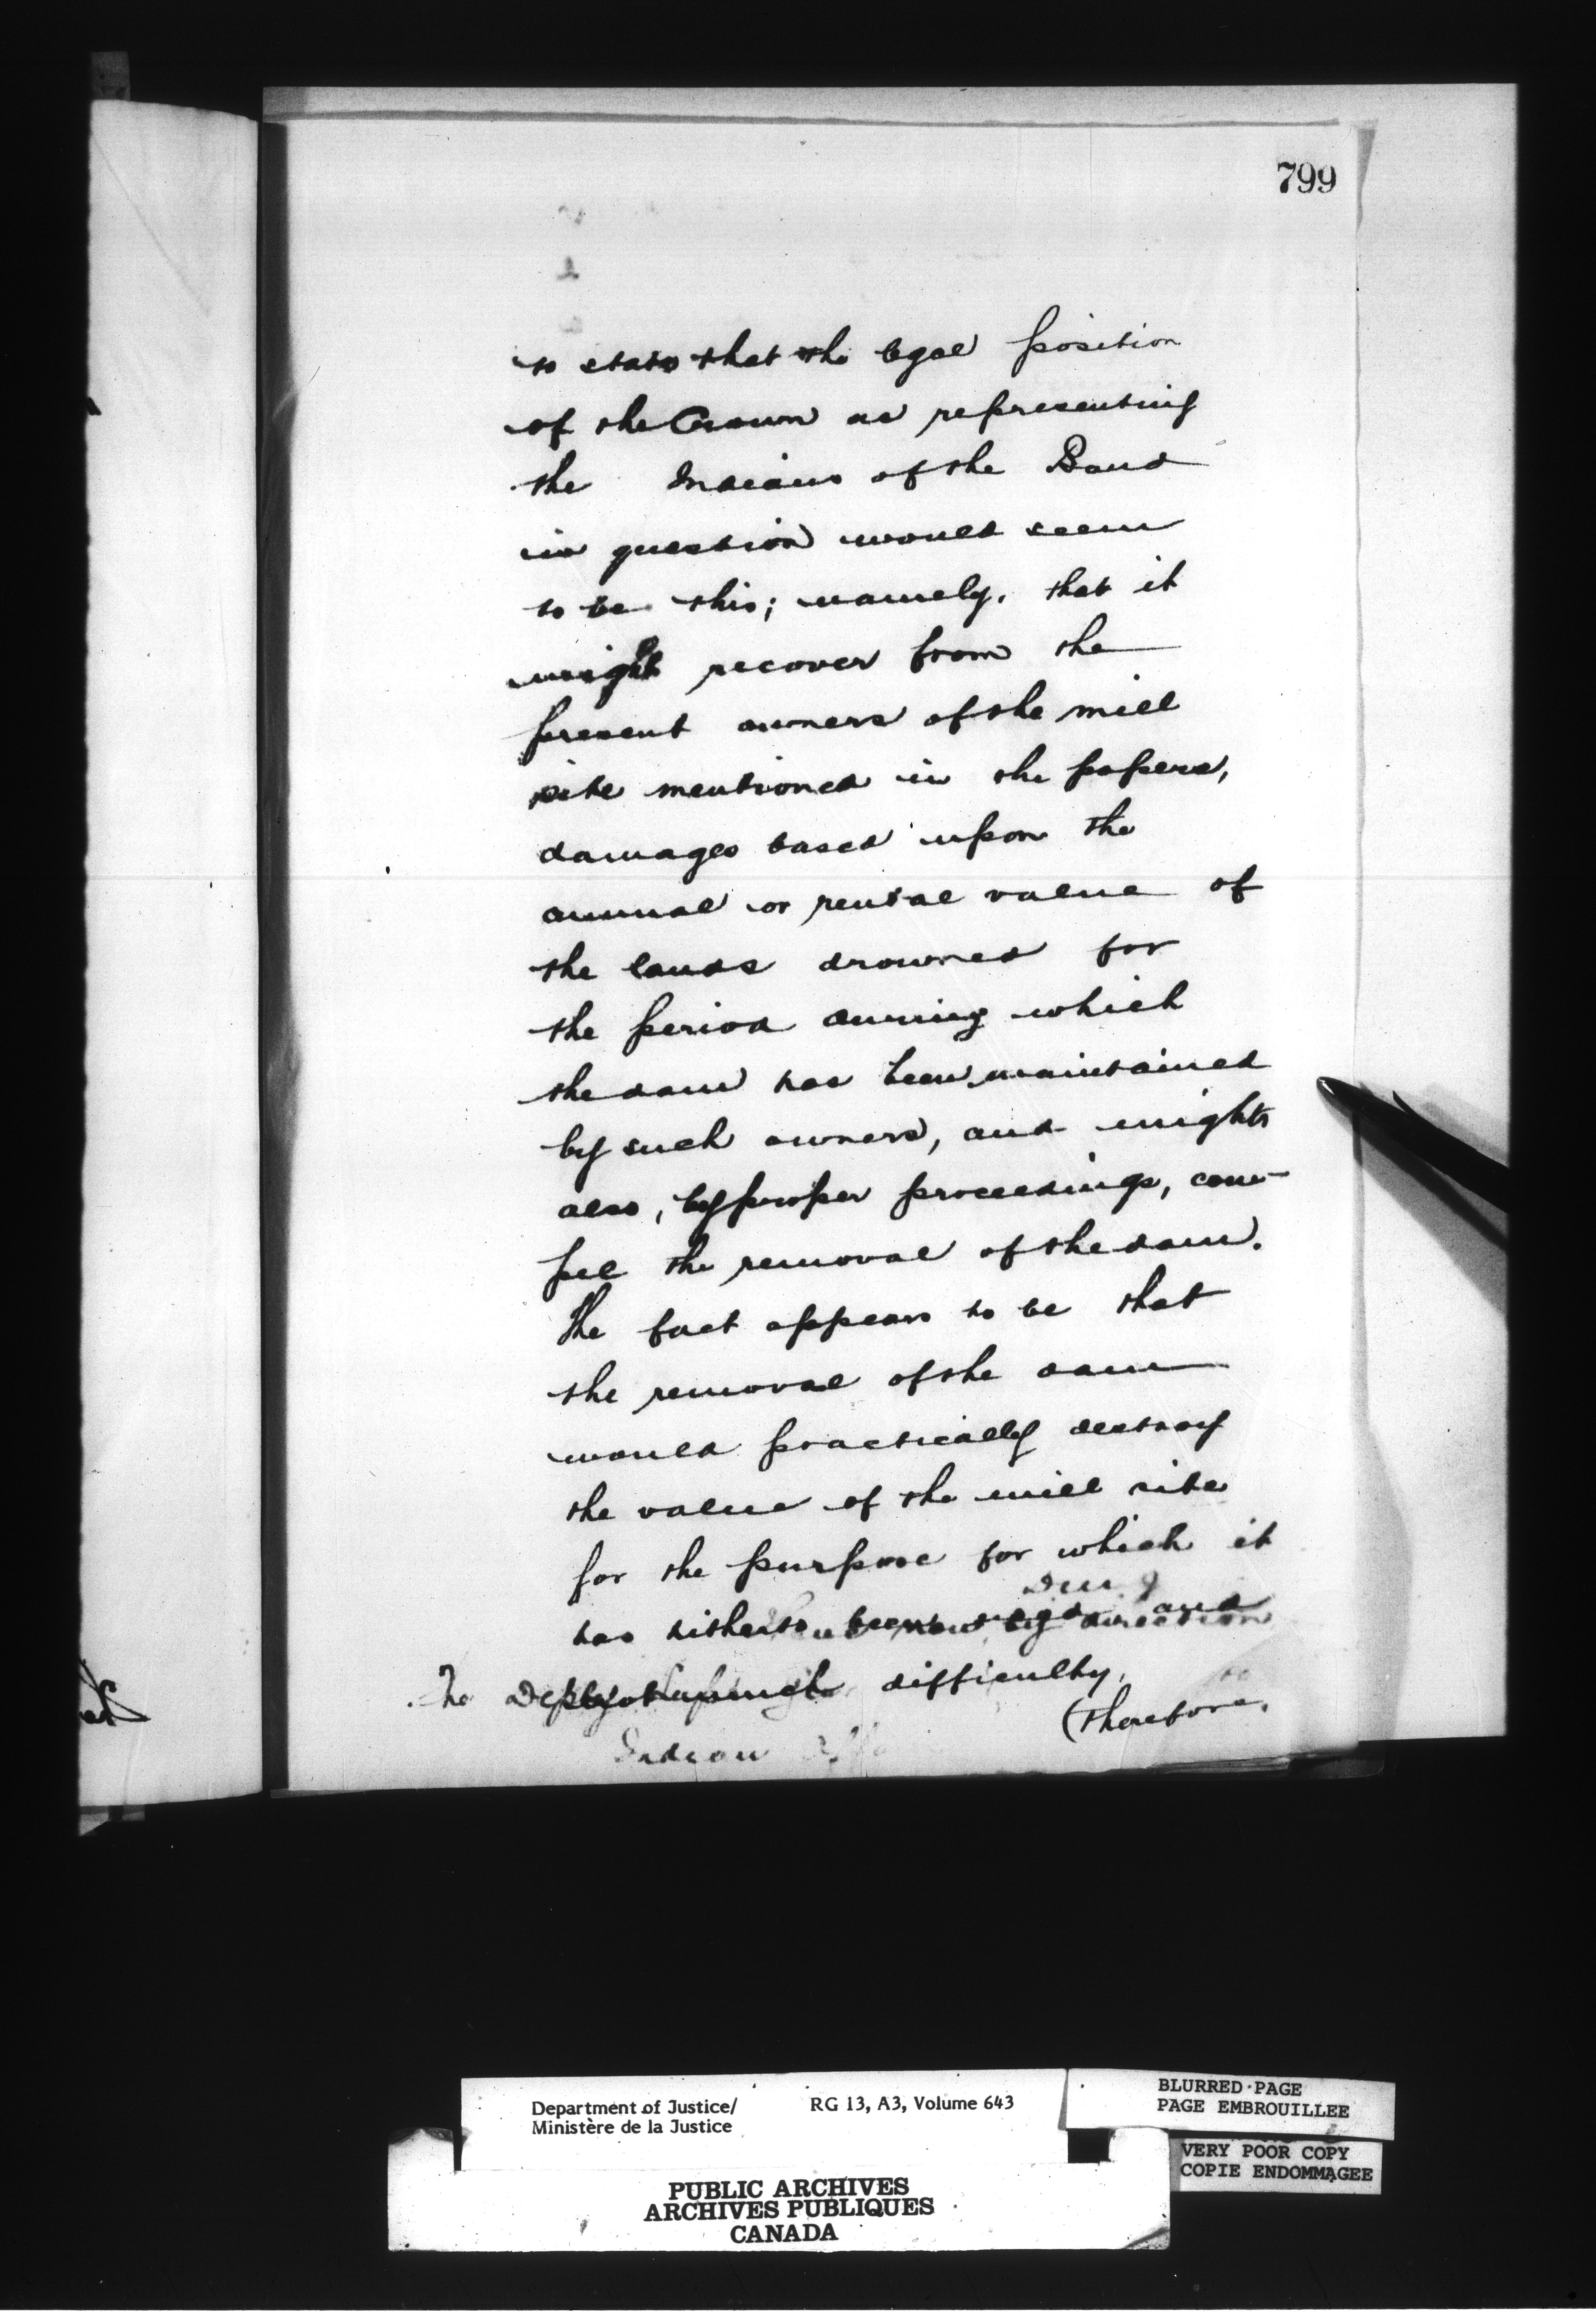 799
to state that the legal position
of the Crown as representing
the Indians of the Band
in question would seem
to be this; namely, that it
might recover from the
present owners of the mill
site mentioned in the papers,
damages based upon the
annual or rental value of
the lands drowned for
the period during which
the dam has been maintained
by such owners, and might
also, by proper proceedings, com-
pel the removal of the dam.
The fact appears to be that
the removal of the dam
would practically destroy
the value of the mill site
for the purpose for which it
has hitherto been used and
The Deputy difficulty.
(Therefore,
Indian
Department of Justice/ RG 13, A3, Volume 643
Ministère de la Justice
PUBLIC ARCHIVES
ARCHIVES PUBLIQUES
CANADA
BLURRED PAGE
PAGE EMBROUILLEE
VERY POOR COPY
COPIE ENDOMMAGEE